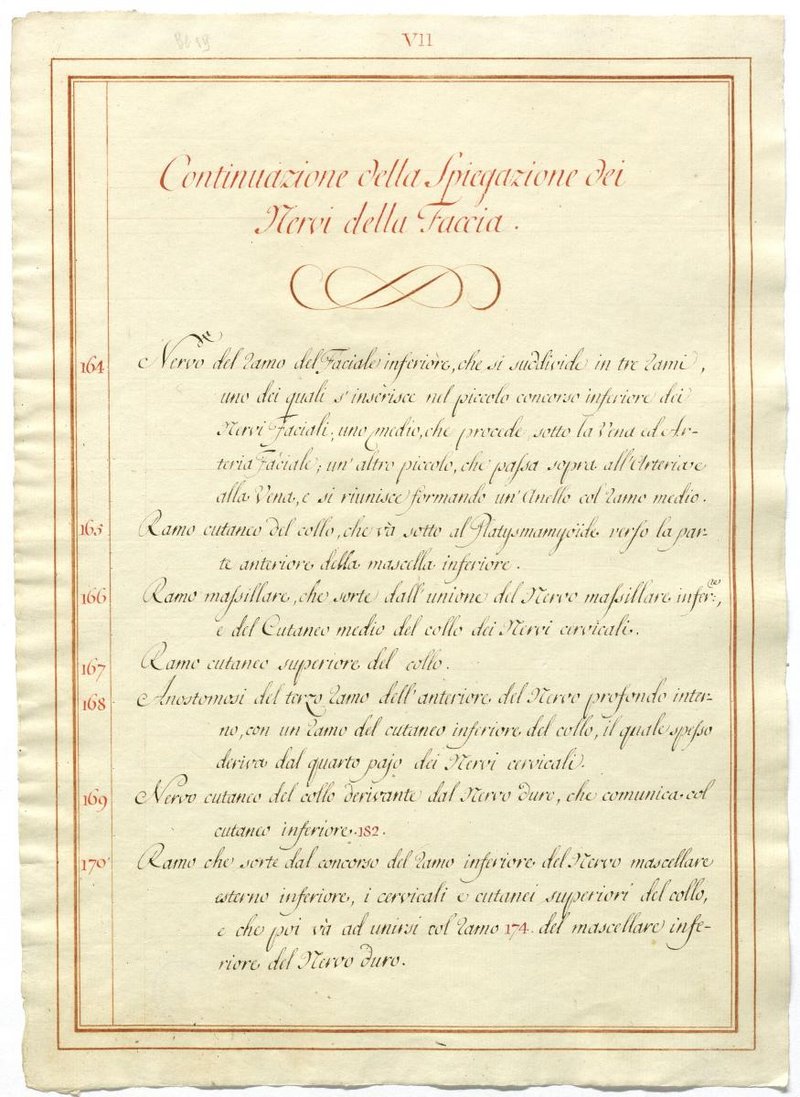 VII
Continuazione della Spiegazione dei
Nervi della Faccia.
164 Nervo del ramo del Faciale inferiore, che si suddivide in tre rami,
uno dei quali s'inserisce nel piccolo concorso inferiore dei
Nervi Faciali; uno medio, che procede sotto la Vena ed Ar-
teria Faciale; un'altro piccolo, che passa sopra all'Arteria e
alla Vena, e si riunisce formando un'Anello col ramo medio.
165 Ramo cutaneo del collo, che và sotto al Platysmamyoïde verso la par-
te anteriore della mascella inferiore.
166 Ramo massillare, che sorte dall'unione del Nervo massillare infer:re,
e del Cutaneo medio del collo dei Nervi cervicali.
167 Ramo cutaneo superiore del collo.
168 Anostomosi del terzo ramo dell'anteriore del Nervo profondo inter-
no, con un ramo del cutaneo inferiore del collo, il quale spesso
deriva dal quarto pajo dei Nervi cervicali.
169 Nervo cutaneo del collo derivante dal Nervo duro, che comunica col
cutaneo inferiore 182.
170 Ramo che sorte dal concorso del ramo inferiore del Nervo mascellare
esterno inferiore, i cervicali e cutanei superiori del collo,
e che poi và ad unirsi col ramo 174. del mascellare infe-
riore del Nervo duro.